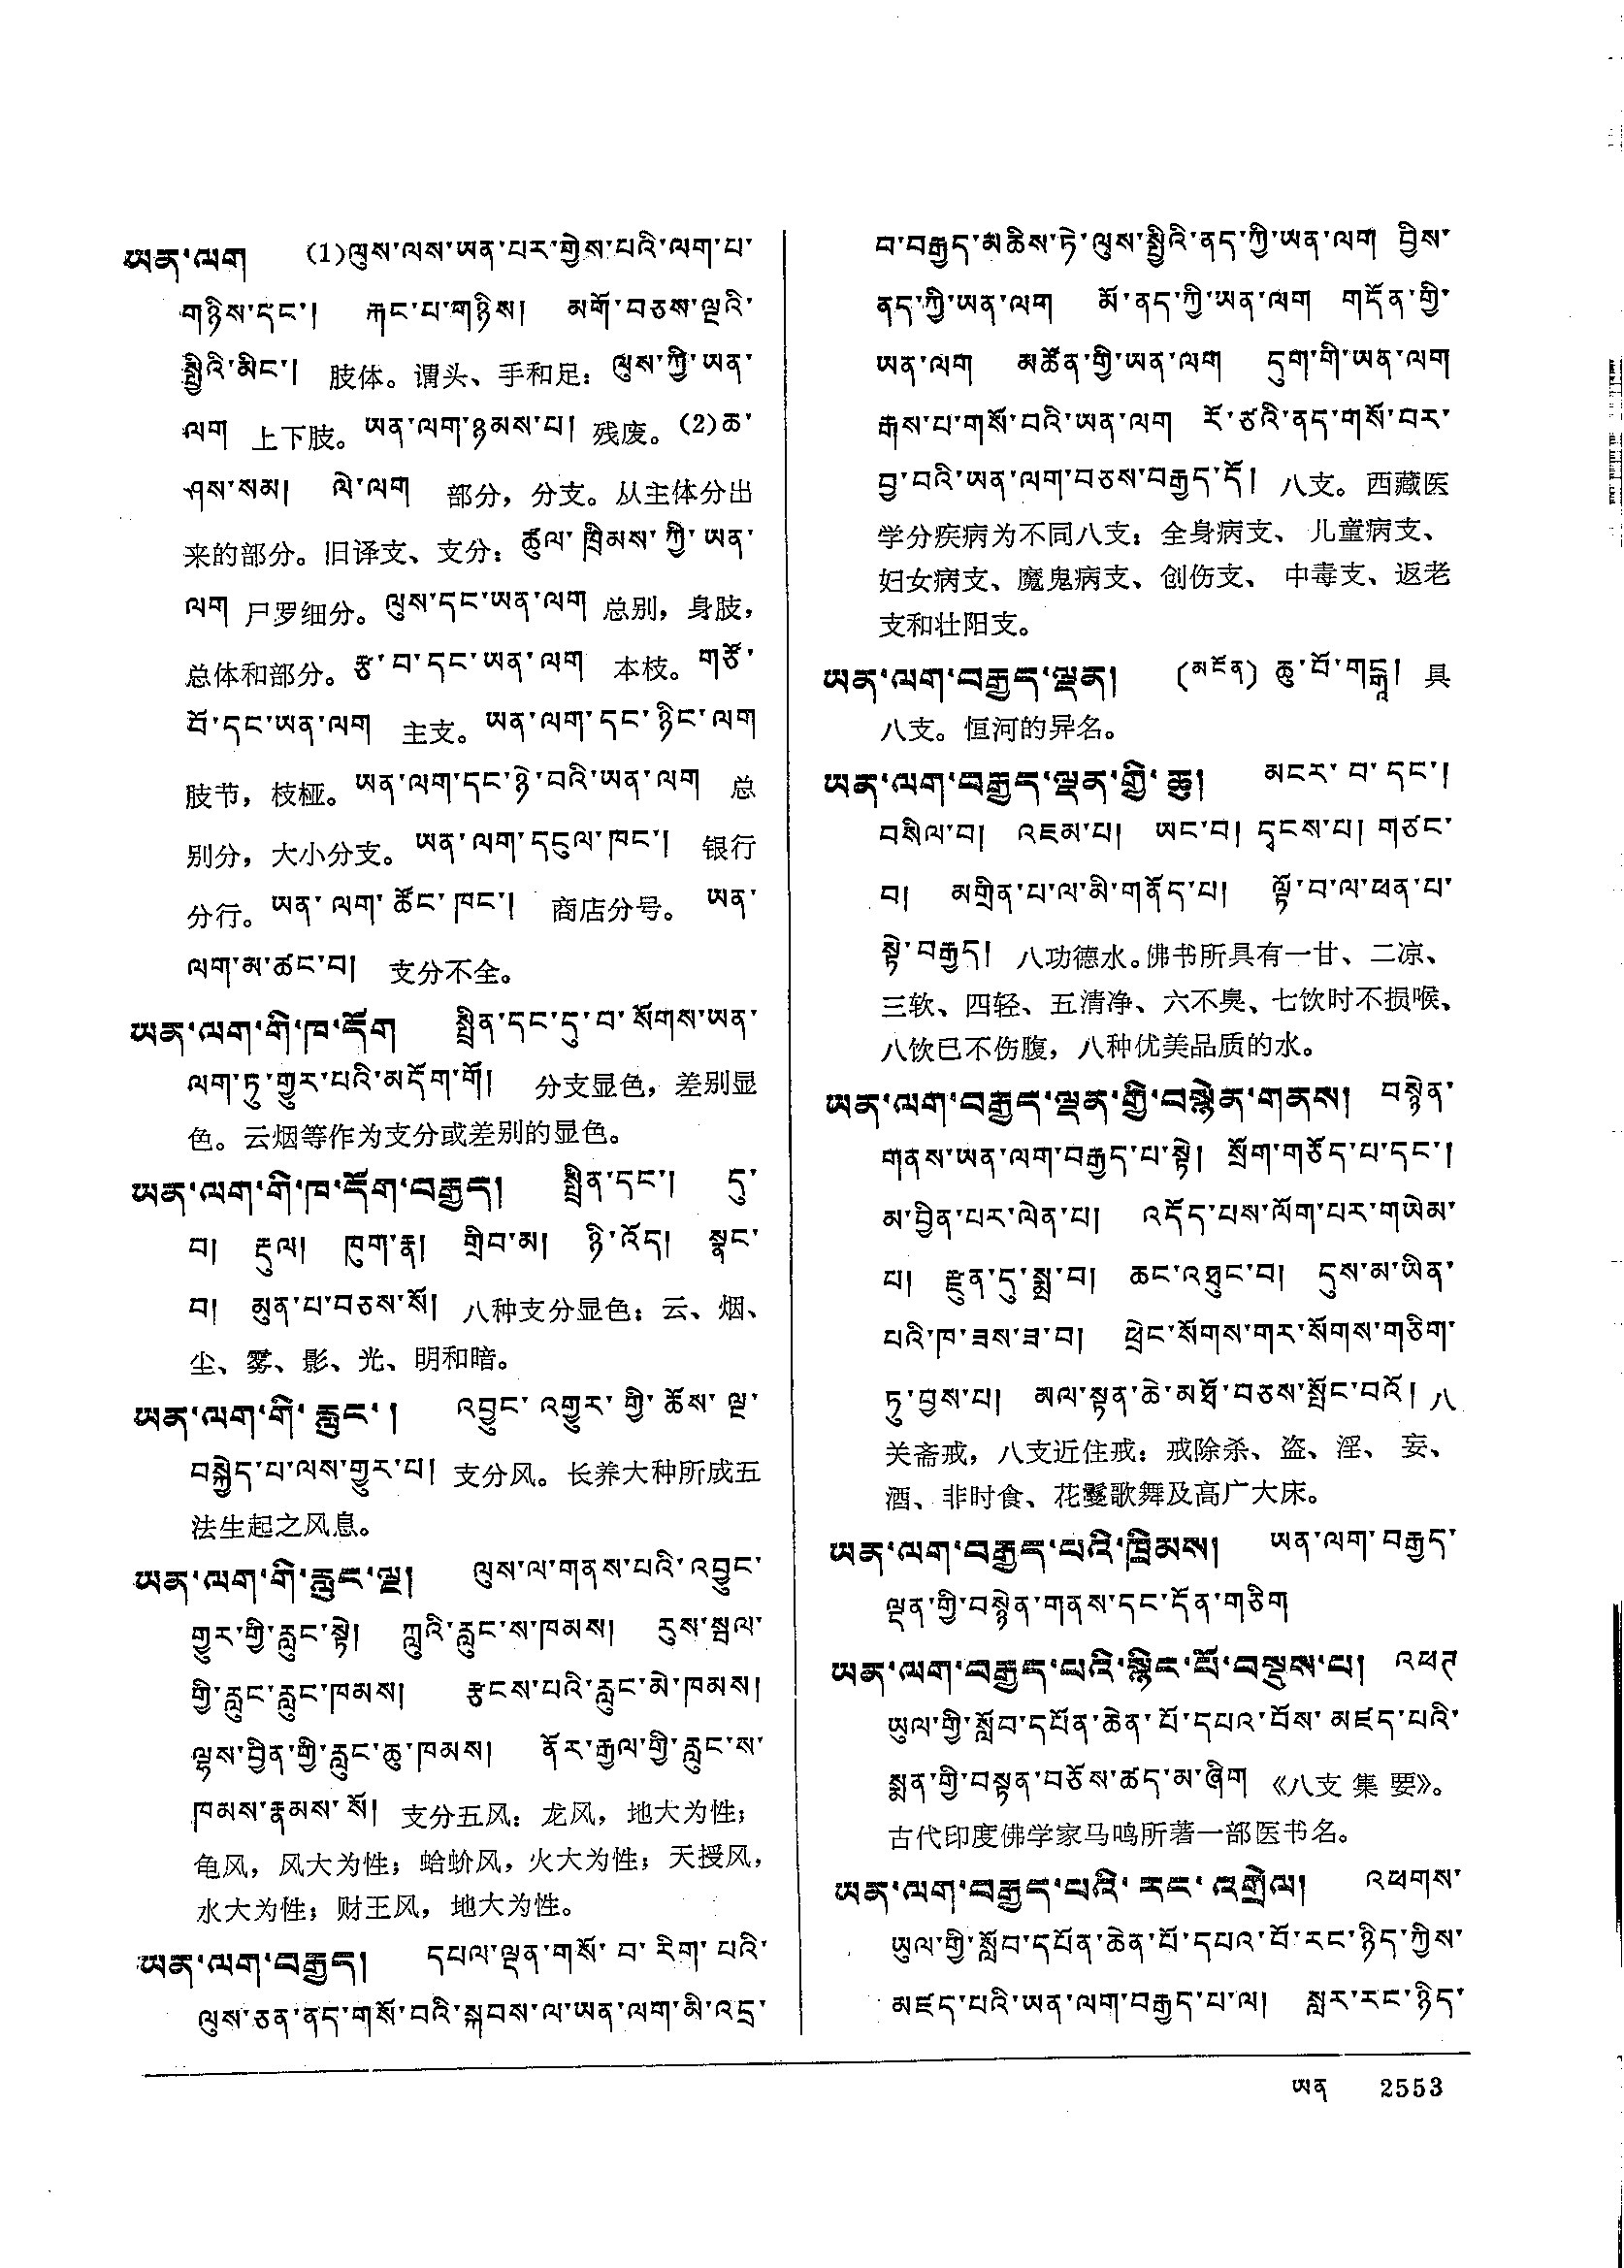 ཡན་ལག (1)ལུས་ལས་ཡན་པར་གྱེས་པའི་ལག་པ་
གཉིས་དང་། རྐང་པ་གཉིས། མགོ་བཅས་ལྔའི་
སྤྱིའི་མིང་། 肢体。谓头、手和足：ལུས་ཀྱི་ཡན་
ལག 上下肢。ཡན་ལག་ཉམས་པ། 残废。(2)ཆ་
ཤས་སམ། ལེ་ལག 部分，分支。从主体分出
来的部分。旧译支、支分：ཚུལ་ཁྲིམས་ཀྱི་ཡན་
ལག 尸罗细分。ལུས་དང་ཡན་ལག 总别，身肢，
总体和部分。རྩ་བ་དང་ཡན་ལག 本枝。གཙོ་
བོ་དང་ཡན་ལག 主支。ཡན་ལག་དང་ཉིང་ལག
肢节，枝桠。ཡན་ལག་དང་ཉེ་བའི་ཡན་ལག 总
别分，大小分支。ཡན་ལག་དངུལ་ཁང་། 银行
分行。ཡན་ལག་ཚོང་ཁང་། 商店分号。 ཡན་
ལག་མ་ཚང་བ། 支分不全。
ཡན་ལག་གི་ཁ་དོག སྤྲིན་དང་དུ་བ་སོགས་ཡན་
ལག་ཏུ་གྱུར་པའི་མདོག་གོ། 分支显色，差别显
色。云烟等作为支分或差别的显色。
ཡན་ལག་གི་ཁ་དོག་བརྒྱད། སྤྲིན་དང་། དུ་
བ། རྡུལ། ཁུག་རྣ། གྲིབ་མ། ཉི་འོད། སྣང་
བ། མུན་པ་བཅས་སོ། 八种支分显色：云、烟、
尘、雾、影、光、明和暗。
ཡན་ལག་གི་རླུང་། འབྱུང་འགྱུར་གྱི་ཆོས་ལྔ་
བསྐྱེད་པ་ལས་གྱུར་པ། 支分风。长养大种所成五
法生起之风息。
ཡན་ལག་གི་རླུང་ལྔ། ལུས་ལ་གནས་པའི་འབྱུང་
གྱུར་གྱི་རླུང་སྟེ། ཀླུའི་རླུང་ས་ཁམས། རུས་སྦལ་
གྱི་རླུང་རླུང་ཁམས། རྩངས་པའི་རླུང་མེ་ཁམས།
ལྷས་བྱིན་གྱི་རླུང་ཆུ་ཁམས། ནོར་རྒྱལ་གྱི་རླུང་ས་
ཁམས་རྣམས་སོ། 支分五风：龙风，地大为性；
龟风，风大为性；蛤蚧风，火大为性；天授风，
水大为性；财王风，地大为性。
ཡན་ལག་བརྒྱད། དཔལ་ལྡན་གསོ་བ་རིག་པའི་
ལུས་ཅན་ནད་གསོ་བའི་སྐབས་ལ་ཡན་ལག་མི་འདྲ་
བ་བརྒྱད་མཆིས་ཏེ་ལུས་སྤྱིའི་ནད་ཀྱི་ཡན་ལག བྱིས་
ནད་ཀྱི་ཡན་ལག མོ་ནད་ཀྱི་ཡན་ལག གདོན་གྱི་
ཡན་ལག མཚོན་གྱི་ཡན་ལག དུག་གི་ཡན་ལག
རྒས་པ་གསོ་བའི་ཡན་ལག རོ་ཙའི་ནད་གསོ་བར་
བྱ་བའི་ཡན་ལག་བཅས་བརྒྱད་དོ། 八支。西藏医
学分疾病为不同八支：全身病支、儿童病支、
妇女病支、魔鬼病支、创伤支、中毒支、返老
支和壮阳支。
ཡན་ལག་བརྒྱད་ལྡན། (མངོན) ཆུ་བོ་གངྒཱ། 具
八支。恒河的异名。
ཡན་ལག་བརྒྱད་ལྡན་གྱི་ཆུ། མངར་བ་དང་།
བསིལ་བ། འཇམ་པ། ཡང་བ། དྭངས་པ། གཙང་
བ། མགྲིན་པ་ལ་མི་གནོད་པ། ལྟོ་བ་ལ་ཕན་པ་
སྟེ་བརྒྱད། 八功德水。佛书所具有一甘、二凉、
三软、四轻、五清净、六不臭、七饮时不损喉、
八饮已不伤腹，八种优美品质的水。
ཡན་ལག་བརྒྱད་ལྡན་གྱི་བསྙེན་གནས། བསྙེན་
གནས་ཡན་ལག་བརྒྱད་པ་སྟེ། སྲོག་གཅོད་པ་དང་།
མ་བྱིན་པར་ལེན་པ། འདོད་པས་ལོག་པར་གཡེམ་
པ། རྫུན་དུ་སྨྲ་བ། ཆང་འཐུང་བ། དུས་མ་ཡིན་
པའི་ཁ་ཟས་ཟ་བ། ཕྲེང་སོགས་གར་སོགས་གཅིག་
ཏུ་བྱས་པ། མལ་སྟན་ཆེ་མཐོ་བཅས་སྤོང་བའོ། 八
关斋戒，八支近住戒：戒除杀、盗、淫、妄、
酒、非时食、花鬘歌舞及高广大床。
ཡན་ལག་བརྒྱད་པའི་ཁྲིམས། ཡན་ལག་བརྒྱད་
ལྡན་གྱི་བསྙེན་གནས་དང་དོན་གཅིག
ཡན་ལག་བརྒྱད་པའི་སྙིང་པོ་བསྡུས་པ། འཕཊ
ཡུལ་གྱི་སློབ་དཔོན་ཆེན་པོ་དཔའ་བོས་མཛད་པའི་
སྨན་གྱི་བསྟན་བཅོས་ཚད་མ་ཞིག 《八支集要》。
古代印度佛学家马鸣所著一部医书名。
ཡན་ལག་བརྒྱད་པའི་རང་འགྲེལ། འཕགས་
ཡུལ་གྱི་སློབ་དཔོན་ཆེན་པོ་དཔའ་བོ་རང་ཉིད་ཀྱིས་
མཛད་པའི་ཡན་ལག་བརྒྱད་པ་ལ། སླར་རང་ཉིད་
ཡན 2553